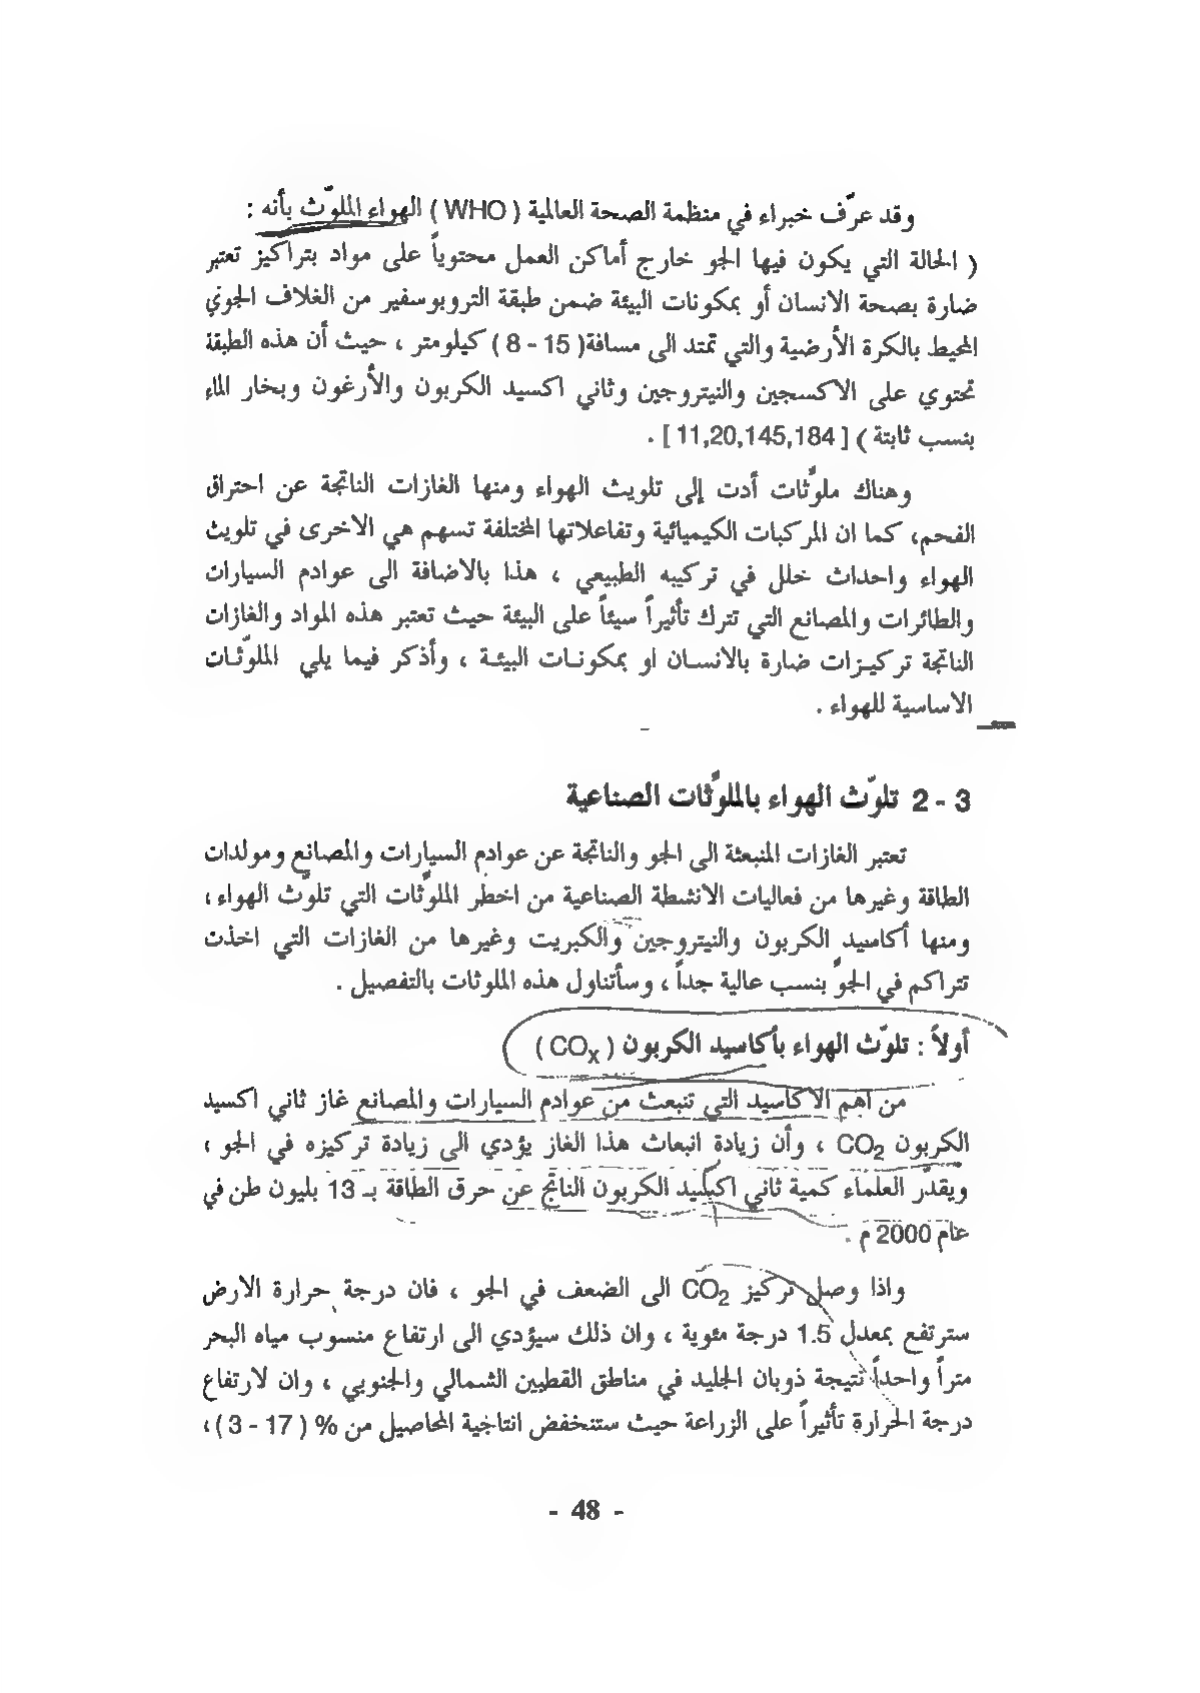 وقد عرّف خبراء في منظمة الصحة العالمية ( WHO ) الهواء الملوّث بأنه :
( الحالة التي يكون فيها الجو خارج أماكن العمل محتوياً على مواد بتراكيز تعتبر
ضارة بصحة الانسان أو بمكونات البيئة ضمن طبقة التروبوسفير من الغلاف الجوي
المحيط بالكرة الأرضية والتي تمتد الى مسافة( 15 - 8 ) كيلومتر ، حيث أن هذه الطبقة
تحتوي على الاكسجين والنيتروجين وثاني اكسيد الكربون والأرغون وبخار الماء
بنسب ثابتة ) [ 11,20,145,184 ] .
وهناك ملوّثات أدت إلى تلويث الهواء ومنها الغازات الناتجة عن احتراق
الفحم، كما ان المركبات الكيميائية وتفاعلاتها المختلفة تسهم هي الاخرى في تلويث
الهواء واحداث خلل في تركيبه الطبيعي ، هذا بالاضافة الى عوادم السيارات
والطائرات والمصانع التي تترك تأثيراً سيئاً على البيئة حيث تعتبر هذه المواد والغازات
الناتجة تركيزات ضارة بالانسان او بمكونات البيئة ، وأذكر فيما يلي الملوّثات
الاساسية للهواء .
2 - 3 تلوّث الهواء بالملوّثات الصناعية
تعتبر الغازات المنبعثة الى الجو والناتجة عن عوادم السيارات والمصانع ومولدات
الطاقة وغيرها من فعاليات الانشطة الصناعية من اخطر الملوّثات التي تلوّث الهواء ،
ومنها أكاسيد الكربون والنيتروجين والكبريت وغيرها من الغازات التي اخذت
تتراكم في الجوّ بنسب عالية جداً ، وسأتناول هذه الملوثات بالتفصيل .
أولاً : تلوّث الهواء بأكاسيد الكربون ( COx )
من اهم الأكاسيد التي تنبعث من عوادم السيارات والمصانع غاز ثاني اكسيد
الكربون CO2 ، وأن زيادة انبعاث هذا الغاز يؤدي الى زيادة تركيزه في الجو ،
ويقدّر العلماء كمية ثاني اكسيد الكربون الناتج عن حرق الطاقة بـ 13 بليون طن في
عام 2000 م .
واذا وصل تركيز CO2 الى الضعف في الجو ، فان درجة حرارة الارض
سترتفع بمعدل 1.5 درجة مئوية ، وان ذلك سيؤدي الى ارتفاع منسوب مياه البحر
متراً واحداً نتيجة ذوبان الجليد في مناطق القطبين الشمالي والجنوبي ، وان لارتفاع
درجة الحرارة تأثيراً على الزراعة حيث ستنخفض انتاجية المحاصيل من % ( 17 - 3 ) ،
- 48 -